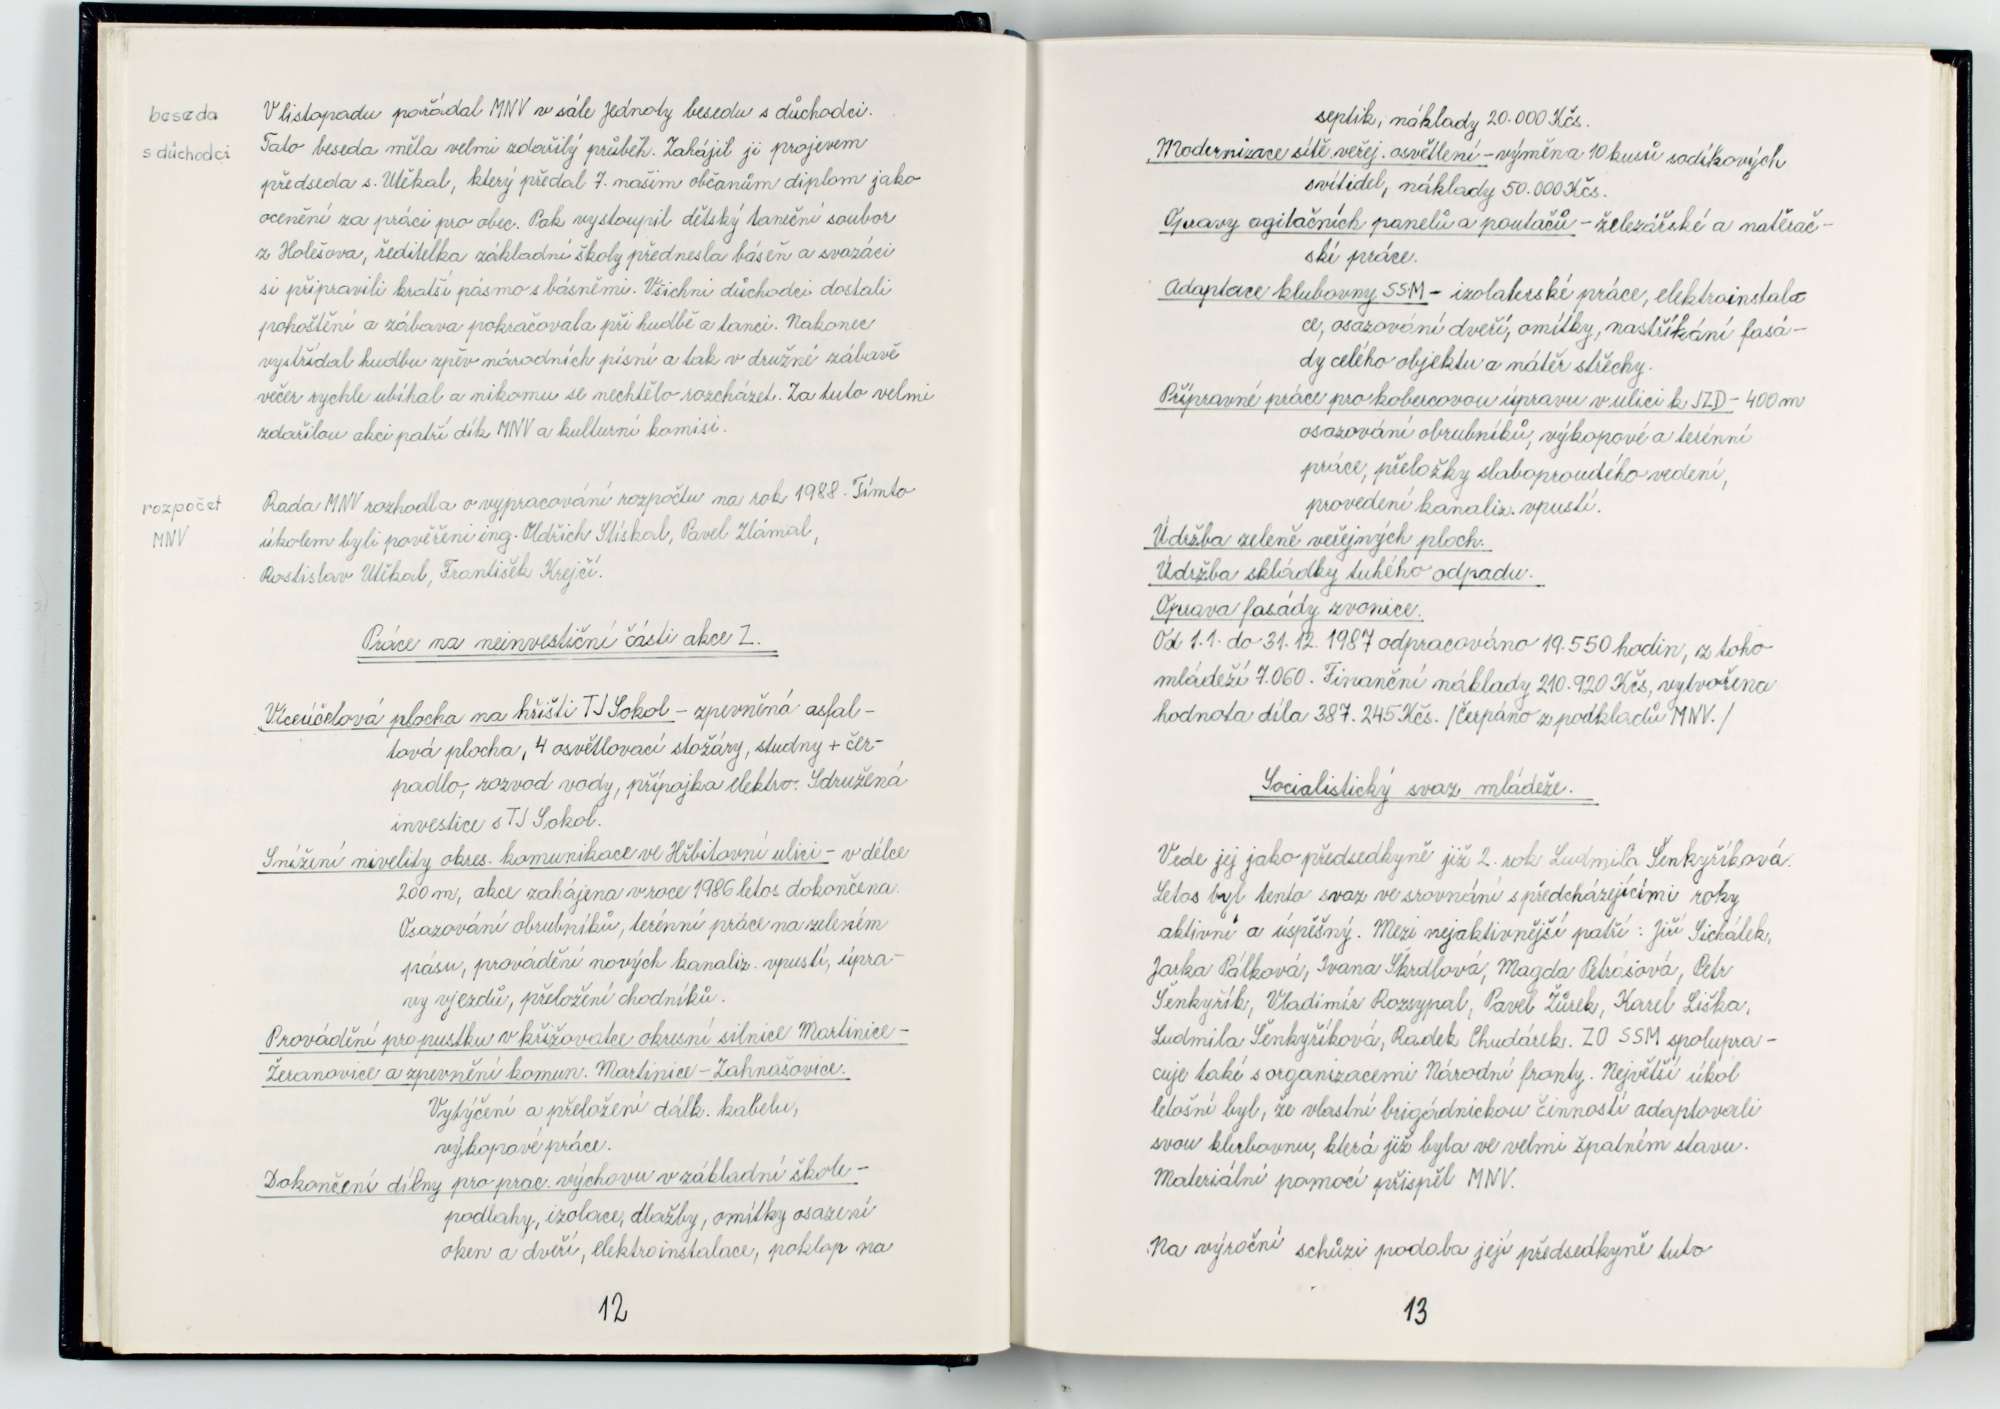 beseda
s důchodci
V listopadu pořádal MNV v sále Jednoty besedu s důchodci.
Tato beseda měla velmi zdařilý průběh. Zahájil ji projevem
předseda s. Utěkal, který předal 7. našim občanům diplom jako
ocenění za práci pro obec. Pak vystoupil dětský taneční soubor
z Holešova, ředitelka základní školy přednesla báseň a svazáci
si připravili kratší pásmo s básněmi. Všichni důchodci dostali
pohoštění a zábava pokračovala při hudbě a tanci. Nakonec
vystřídal hudbu zpěv národních písní a tak v družné zábavě
večer rychle ubíhal a nikomu se nechtělo rozcházet. Za tuto velmi
zdařilou akci patří dík MNV a kulturní komisi.
rozpočet
MNV
Rada MNV rozhodla o vypracování rozpočtu na rok 1988. Tímto
úkolem byli pověřeni ing. Oldřich Stískal, Pavel Zlámal,
Rostislav Utěkal, František Krejčí.
Práce na neinvestiční části akce Z.
Víceúčelová plocha na hřišti TJ Sokol – zpevněná asfal-
tová plocha, 4 osvětlovací stožáry, studny + čer-
padlo, rozvod vody, přípojka elektro. Sdružená
investice s TJ Sokol.
Snížení nivelity okres. komunikace ve Hřbitovní ulici – v délce
200 m, akce zahájena v roce 1986 letos dokončena.
Osazování obrubníků, terénní práce na zeleném
pásu, provádění nových kanaliz. vpustí, úpra-
vy vjezdů, přeložení chodníků.
Provádění propustku v křižovatce okresní silnice Martinice –
Žeranovice a zpevnění komun. Martinice – Zahnašovice.
Vytýčení a přeložení dálk. kabelu,
výkopové práce.
Dokončení dílny pro prac. výchovu v základní škole –
podlahy, izolace, dlažby, omítky osazení
oken a dveří, elektroinstalace, poklop na
12
septik, náklady 20.000 Kčs.
Modernizace sítě veřej. osvětlení – výměna 10 kusů sodíkových
svítidel, náklady 50.000 Kčs.
Opravy agitačních panelů a poutačů – železářské a natěrač-
ské práce.
Adaptace klubovny SSM – izolaterské práce, elektroinstala
ce, osazování dveří, omítky, nastříkání fasá-
dy celého objektu a nátěr střechy.
Přípravné práce pro kobercovou úpravu v ulici k JZD – 400 m
osazování obrubníků, výkopové a terénní
práce, přeložky slaboproudého vedení,
provedení kanaliz. vpustí.
Údržba zeleně veřejných ploch.
Údržba skládky tuhého odpadu.
Oprava fasády zvonice.
Od 1.1. do 31.12. 1987 odpracováno 19.550 hodin, z toho
mládeží 7.060. Finanční náklady 210.920 Kčs, vytvořena
hodnota díla 387.245 Kčs. /Čerpáno z podkladů MNV./
Socialistický svaz mládeže.
Vede jej jako předsedkyně již 2. rok Ludmila Šenkyříková.
Letos byl tento svaz ve srovnání s předcházejícími roky
aktivní a úspěšný. Mezi nejaktivnější patří: Jiří Sichálek,
Jarka Pálková, Ivana Škrdlová, Magda Petrášová, Petr
Šenkyřík, Vladimír Rozsypal, Pavel Žůrek, Karel Liška,
Ludmila Šenkyříková, Radek Chudárek. ZO SSM spolupra-
cuje také s organizacemi Národní fronty. Největší úkol
letošní byl, že vlastní brigádnickou činností adaptovali
svou klubovnu, která již byla ve velmi špatném stavu.
Materiální pomocí přispěl MNV.
Na výroční schůzi podala její předsedkyně tuto
13